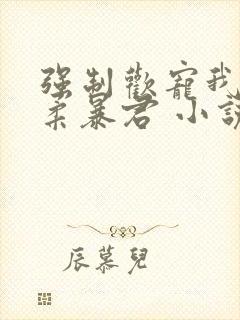 强制歡寵我
柔暴君 小說
辰慕兒